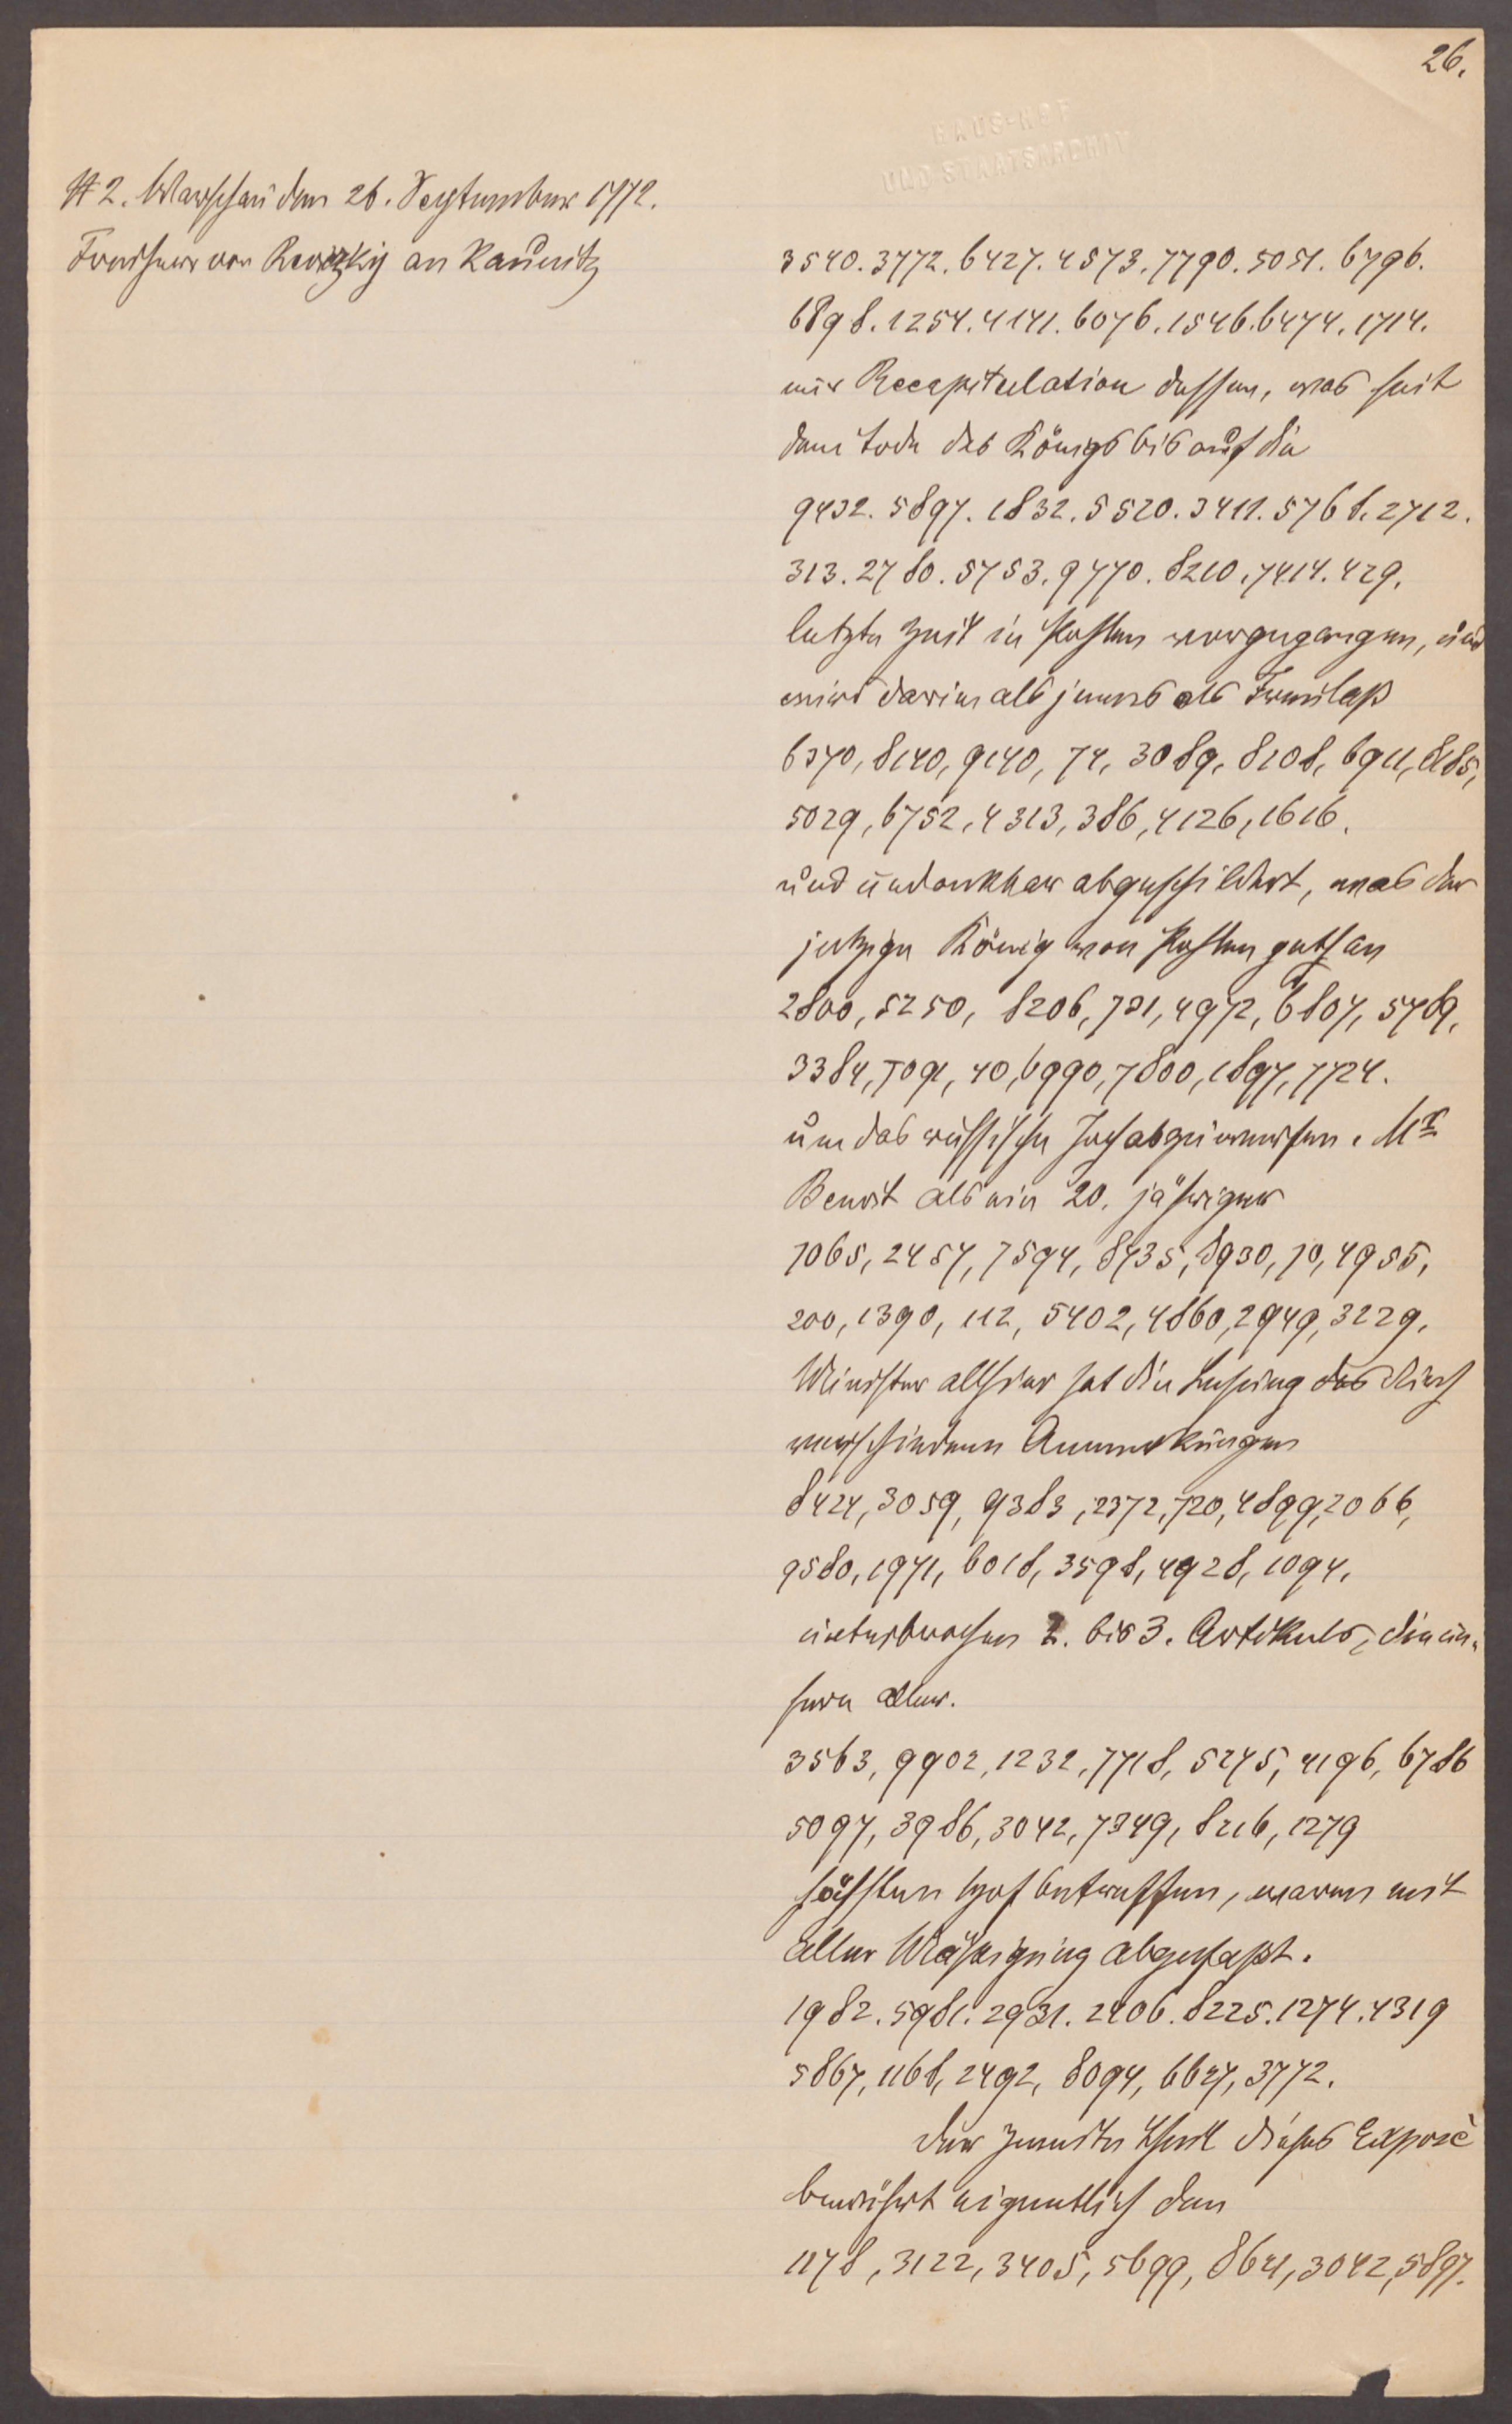 26.
HAUS-HOF
UND STAATSARCHIV
# 2. Warschau den 26. September 1772.
Freiherr von Reviczky an Kaunitz
3540. 3772. 6427. 4573. 7790. 5051. 6796.
6898. 1254. 4141. 6076. 1546. 6474. 1714.
eine Recapitulation dessen, was seit
dem Tode des Königs bis auf die
9432. 5897. 1832. 5520. 3411. 5768. 2712.
313. 2780. 5753. 9770. 8210. 7414. 429.
letzte Zeit in Pohlen vorgegangen, und
wird darin alles jenes als
6370, 8140, 9140, 74, 3089, 8108, 6911, 8185,
5029, 6752, 4313, 386, 4126, 1616.
und undankbar abgeschildert, was der
jetzige König von Pohlen gethan
2800, 5250, 8206, 721, 4972, 6807, 5789,
3384, 5091, 40, 6990, 7800, 1897, 7724.
um das russische Joch abzuwerfen. Mr
Benoit als ein 20. jähriger
7065, 2457, 7594, 8435, 8930, 70, 4955,
200, 1390, 112, 5402, 4860, 2949, 3229.
Minister allhier hat die Lesung des durch
verschiedene Anmerkungen
8424, 3059, 9383, 2372, 720, 4899, 2066,
9580, 1971, 6018, 3598, 4928, 1094.
unterbrochen 2. bis 3. Artikuls, die un-
sern aller.
3563, 9902, 1232, 7718, 5275, 4196, 6786
5097, 3986, 3042, 7349, 8216, 1279
höchsten Hof betreffen, waren mit
aller Mäßigung abgefaßt.
1982. 5981. 2931. 2406. 8225. 1274. 4319
5867, 1168, 2492, 8094, 6627, 3772.
Der zweite Theil dieses Exposè
berührt eigentlich den
1178, 3122, 3405, 5699, 8621, 3042, 5897.